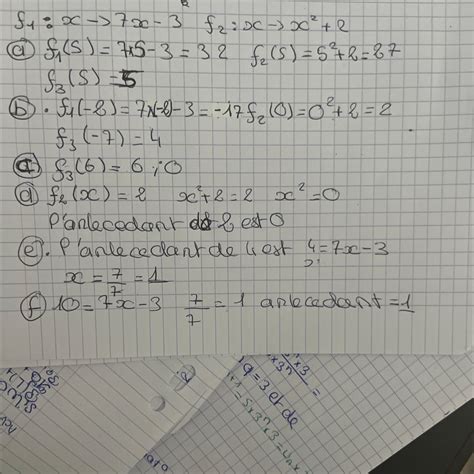 f₁ : x → 7x - 3   f₂ : x → x² + 2
a) f₁(5) = 7×5 - 3 = 32   f₂(5) = 5² + 2 = 27
f₃(5) = 5
b) . f₁(-2) = 7×(-2) - 3 = -17   f₂(0) = 0² + 2 = 2
f₃(-7) = 4
f₃(6) = 6 ; 0
d) f₂(x) = 2   x² + 2 = 2   x² = 0
l'antecedant de 2 est 0
e) . l'antecedant de 4 est 4 = 7x - 3
x = 7/7 = 1
f) 10 = 7x - 3   7/7 = 1   antecedant = 1
q = 3 et de